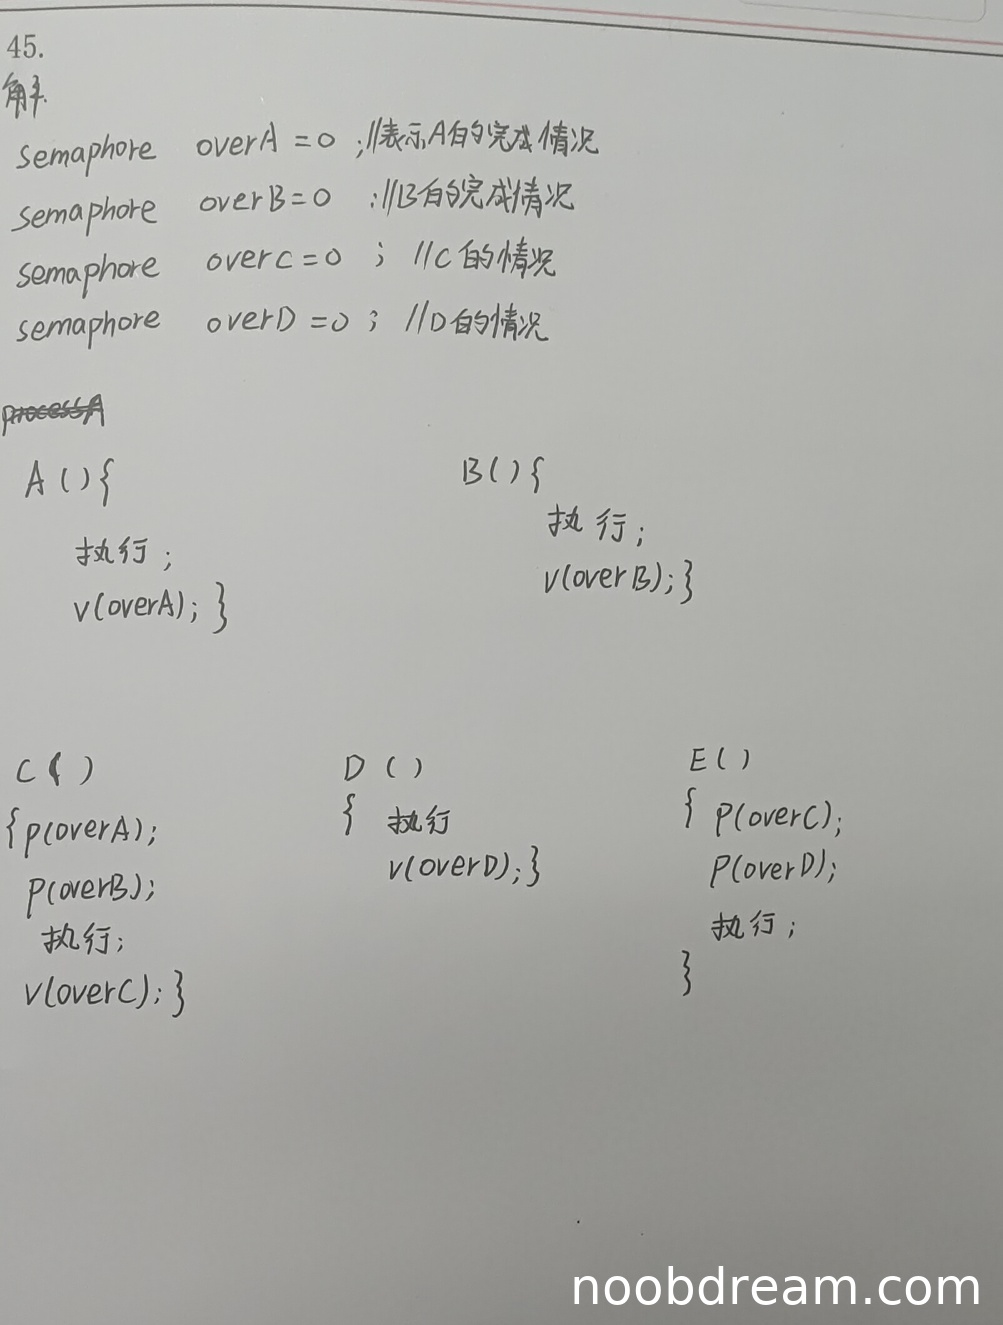 45.
解
semaphore overA = 0 ;//表示A的完成情况
semaphore overB = 0 ;//B的完成情况
semaphore overc = 0 ; //C的情况
semaphore overD = 0 ; //D的情况
processA
A(){
执行;
v(overA);}
B(){
执行;
v(overB);}
C()
{p(overA);
p(overB);
执行;
v(overC);}
D()
{ 执行
v(overD);}
E()
{ P(overC);
P(overD);
执行;
}
noobdream.com